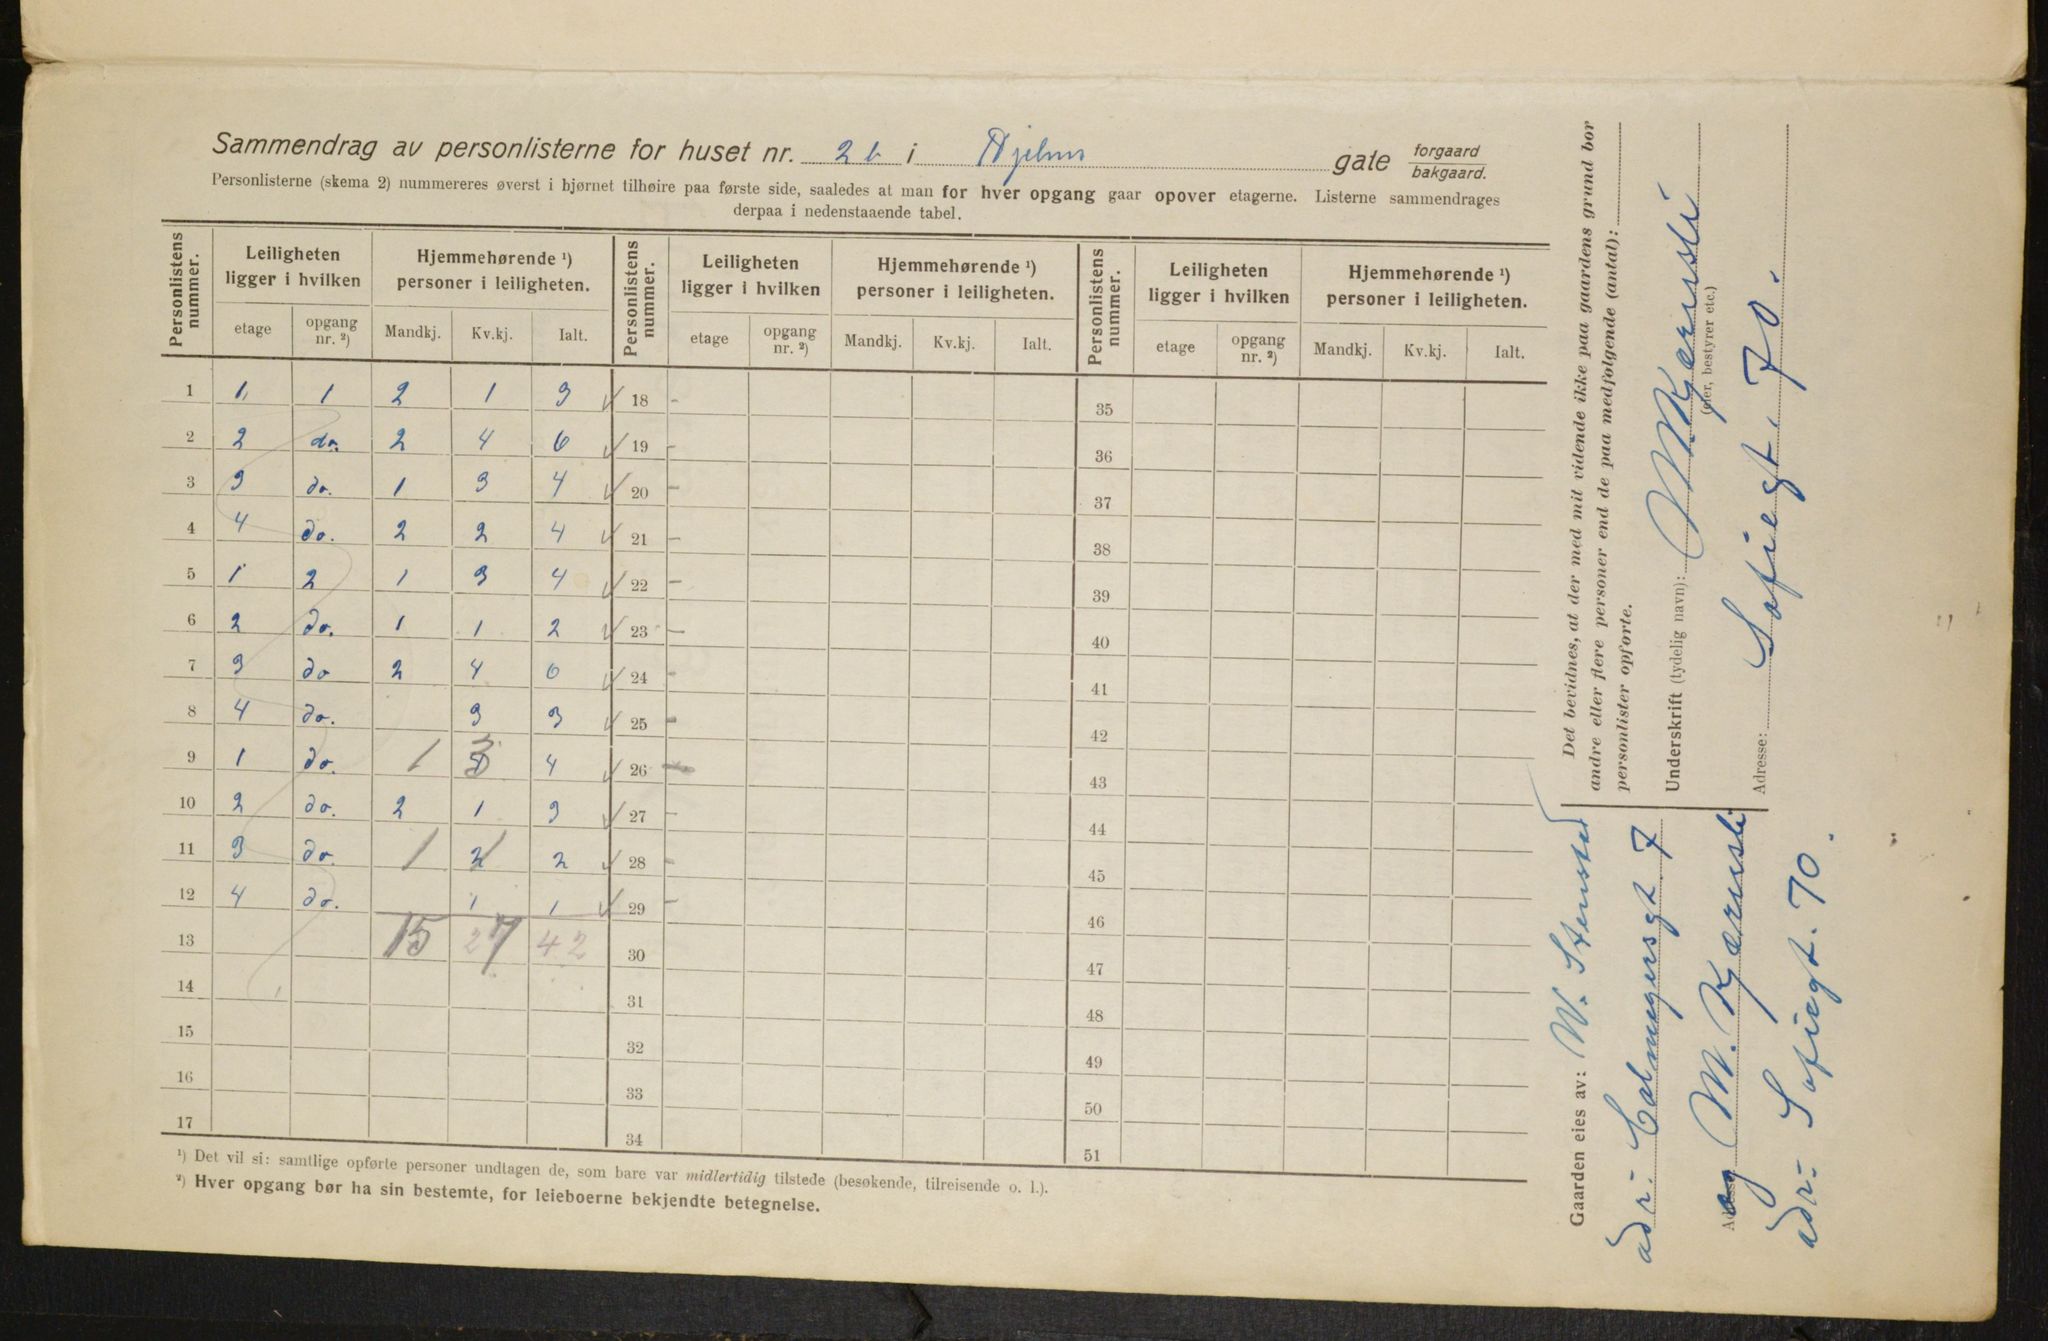 Sammendrag av personlisterne for huset nr. 2b i Hjelms gate forgaard bakgaard.
Personlisterne (skema 2) nummereres øverst i hjørnet tilhøire paa første side, saaledes at man for hver opgang gaar opover etagerne. Listerne sammendrages
derpaa i nedenstaaende tabel.
Personlistens nummer. Leiligheten ligger i hvilken Hjemmehørende ¹) personer i leiligheten. Personlistens nummer. Leiligheten ligger i hvilken Hjemmehørende ¹) personer i leiligheten. Personlistens nummer. Leiligheten ligger i hvilken Hjemmehørende ¹) personer i leiligheten.
etage opgang nr. ²) Mandkj. Kv.kj. Ialt. etage opgang nr. ²) Mandkj. Kv.kj. Ialt. etage opgang nr. ²) Mandkj. Kv.kj. Ialt.
1 1 1 2 1 3 18 - 35
2 2 do. 2 4 6 19 - 36
3 3 do. 1 3 4 20 - 37
4 4 do. 2 2 4 21 - 38
5 1 2 1 3 4 22 - 39
6 2 do. 1 1 2 23 - 40
7 3 do 2 4 6 24 - 41
8 4 do. 3 3 25 - 42
9 1 do. 1 3 4 26 43
10 2 do. 2 1 3 27 - 44
11 3 do. 1 1 2 28 - 45
12 4 do. 1 1 29 - 46
13 15 27 42 30 47
14 31 48
15 32 49
16 33 50
17 34 51
¹) Det vil si: samtlige opførte personer undtagen de, som bare var midlertidig tilstede (besøkende, tilreisende o. l.).
²) Hver opgang bør ha sin bestemte, for leieboerne bekjendte betegnelse.
Det bevidnes, at der med mit vidende ikke paa gaardens grund bor
andre eller flere personer end de paa medfølgende (antal):
personlister opførte.
Underskrift (tydelig navn): M. Kjærisli
(eier, bestyrer etc.)
Adresse: Sofiegt. 70.
Gaarden eies av: W. Stensrud
adr:
og M. Kjærisli
adr: Sofiegt. 70.